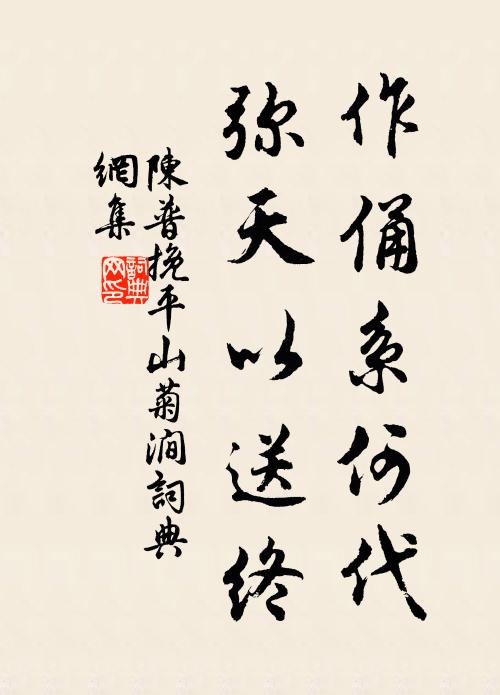 作俑系何代
弥天以送终
陳普挽平山菊澗詞典
網集
詞典網印